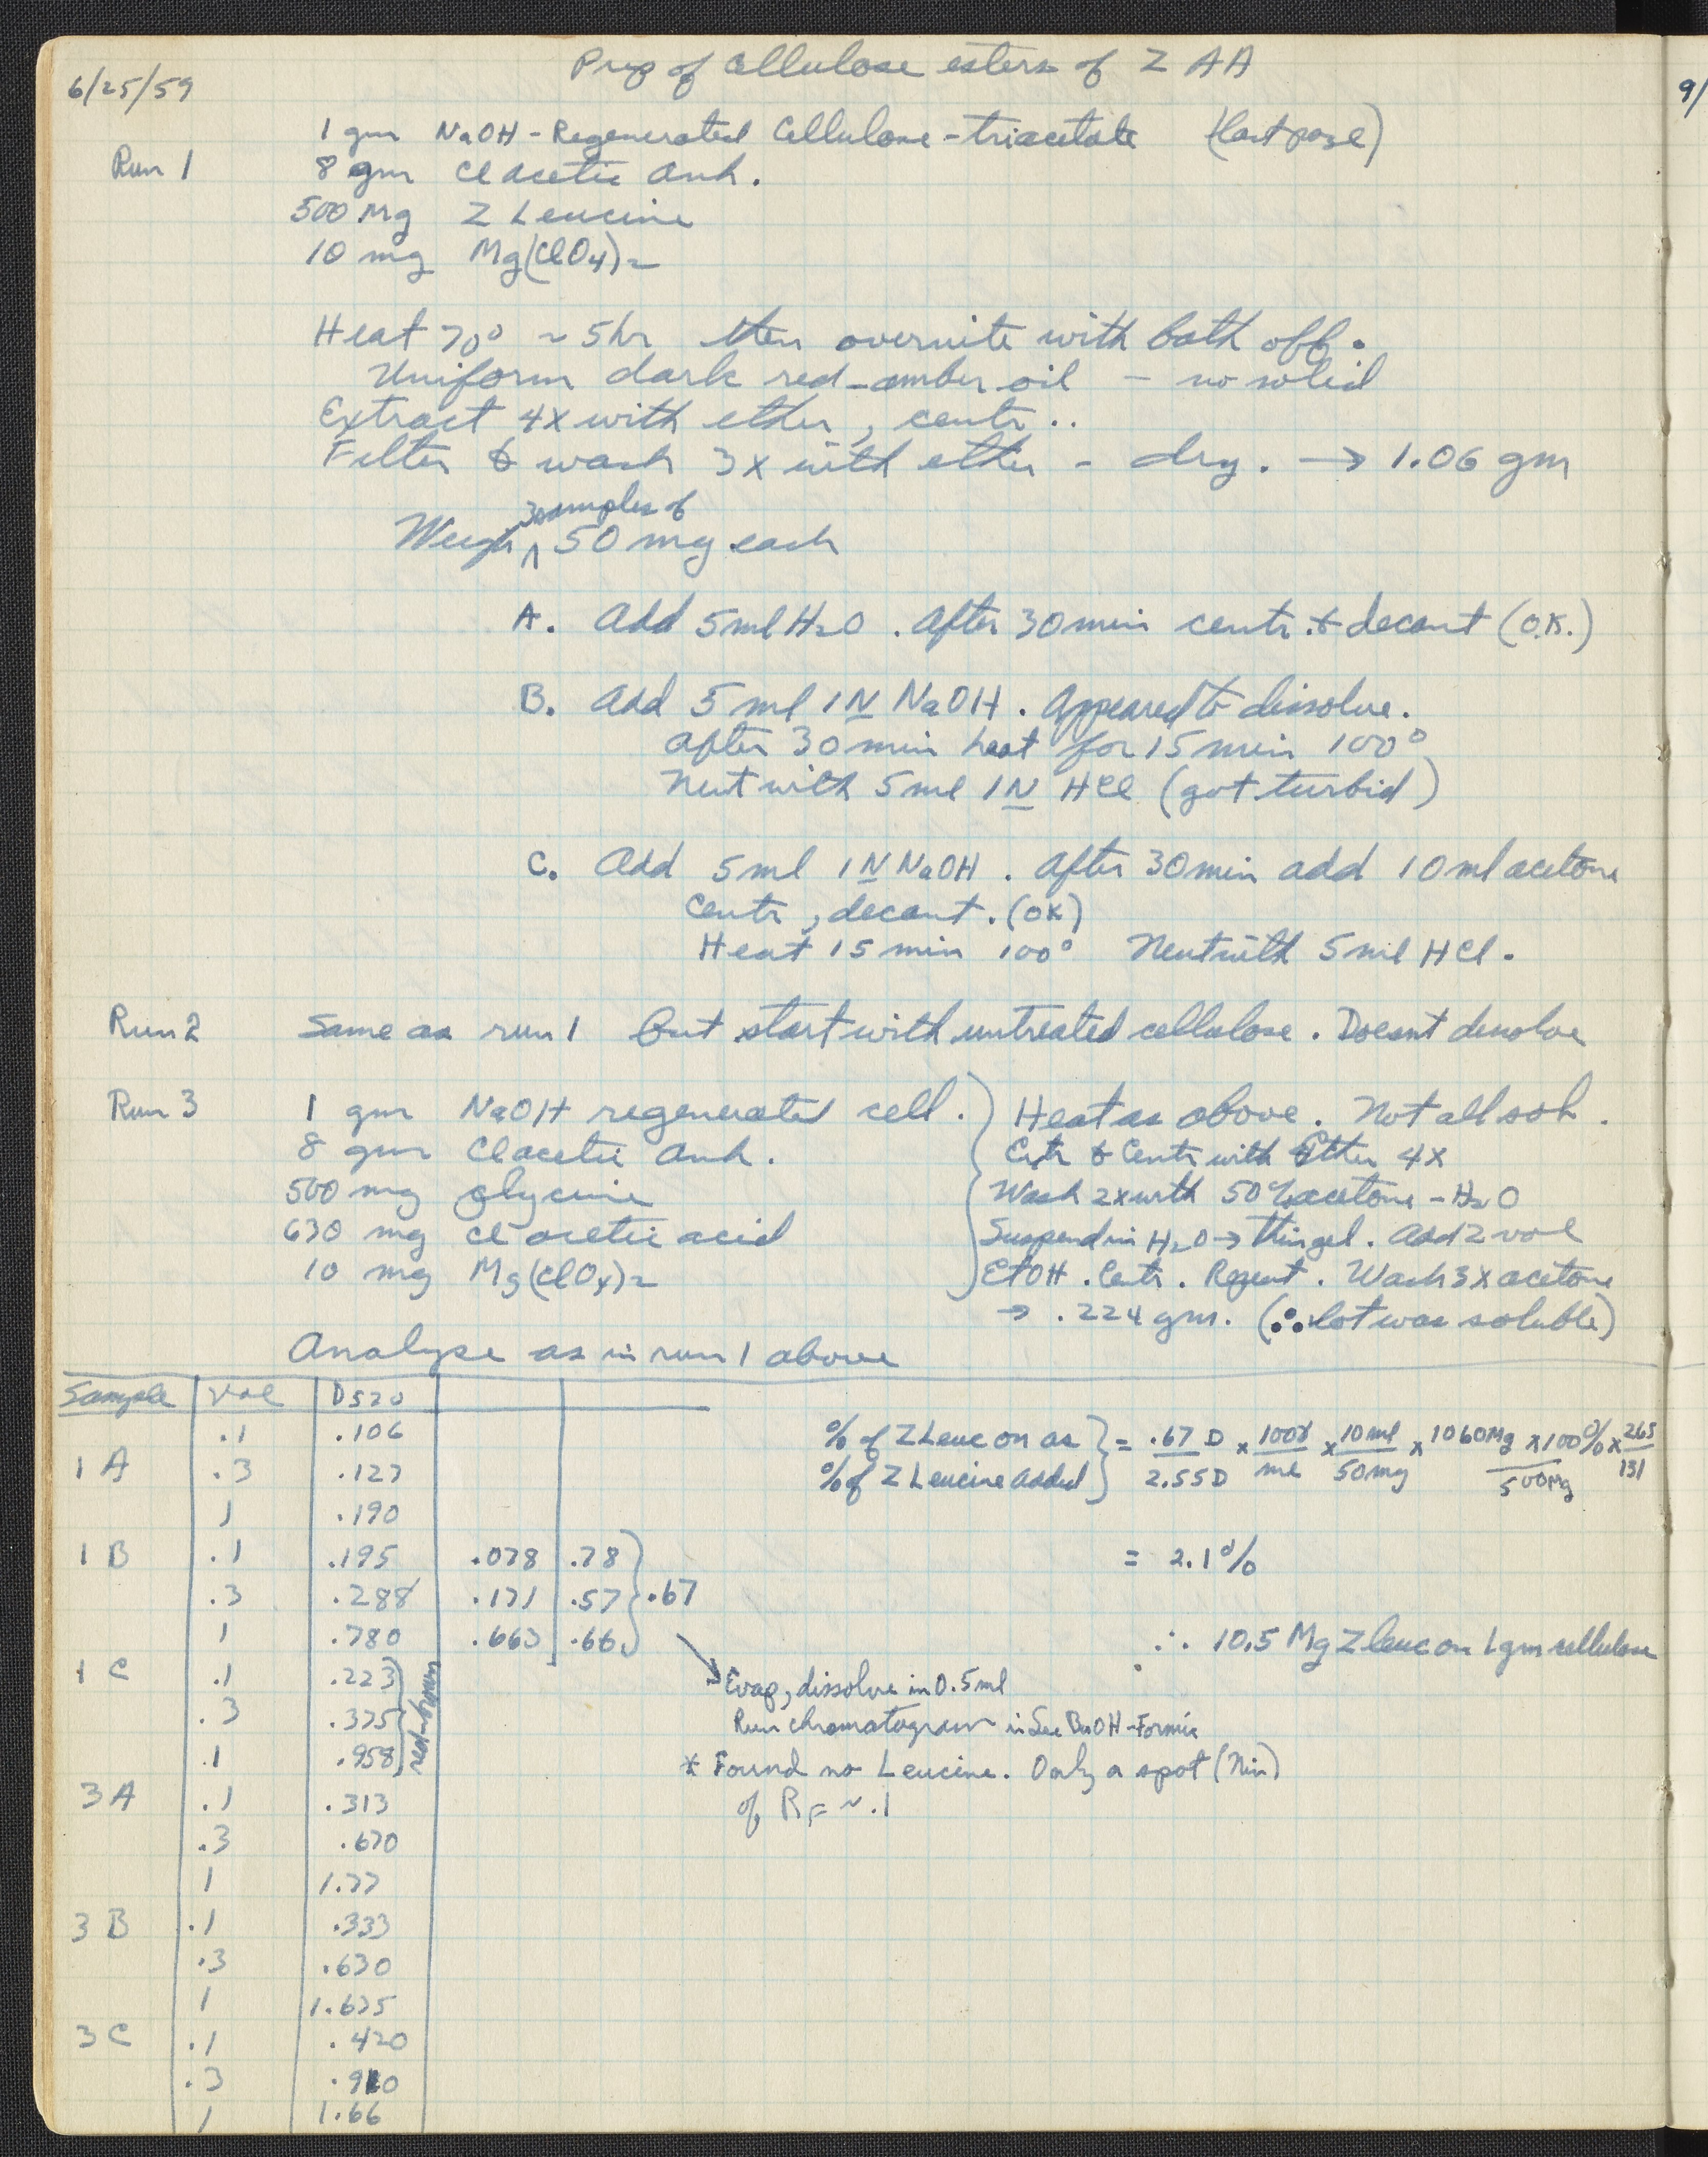 Prep of Cellulose esters of Z AA
6/25/59
9/
1 gm NaOH-Regenerated Cellulose-triacetate (last page)
Run 1 8 gm Cl acetic Anh.
500 Mg Z Leucine
10 mg Mg(ClO4)2
Heat 70° ~ 5hr then overnite with bath off.
Uniform dark red-amber oil - no solid
Extract 4x with ether, centr..
Filter & wash 3x with ether - dry. → 1.06 gm
Weigh 3 samples of 50 mg each
A. Add 5ml H2O. After 30 min centr. & decant (O.K.)
B. Add 5 ml 1N NaOH. Appeared to dissolve.
After 30 min heat for 15 min 100°
Neut with 5 ml 1N HCl (got turbid)
C. Add 5ml 1N NaOH. After 30 min add 10 ml acetone
Centr, decant. (OK)
Heat 15 min 100° Neut with 5 ml HCl.
Run 2 Same as run 1 but start with untreated cellulose. Doesnt desolve
Run 3 1 gm NaOH regenerated cell. } Heat as above. Not all sol.
8 gm Cl acetic Anh. Extr & Centr with Ether 4x
500 mg glycine Wash 2x with 50% acetone-H2O
630 mg Cl acetic acid Suspend in H2O → thin gel. Add 2 vol
10 mg Mg(ClO4)2 EtOH. Centr. Repeat. Wash 3x acetone
→ .224 gm. (∴ lot was soluble)
Analyze as in run 1 above
Sample Vol D520
.1 .106
1 A .3 .127
1 .190
1 B .1 .195 .078 .78
.3 .288 .171 .57 } .67
1 .780 .663 .66
1 C .1 .223
.3 .375 red-brown
.1 .958
3 A .1 .313
.3 .670
1 1.77
3 B .1 .333
.3 .630
1 1.675
3 C .1 .420
.3 .910
1 1.66
% of Z Leuc on as
% of Z Leucine added } = .67 D / 2.55 D x 100γ / ml x 10 ml / 50mg x 1060Mg / 500Mg x 100% x 265 / 131
= 2.1%
∴ 10.5 Mg Z leuc on 1 gm cellulose
Evap, dissolve in 0.5 ml
Run chromatogram in Sec BuOH-Formic
* Found no Leucine. Only a spot (Nin)
of RF = ~ .1